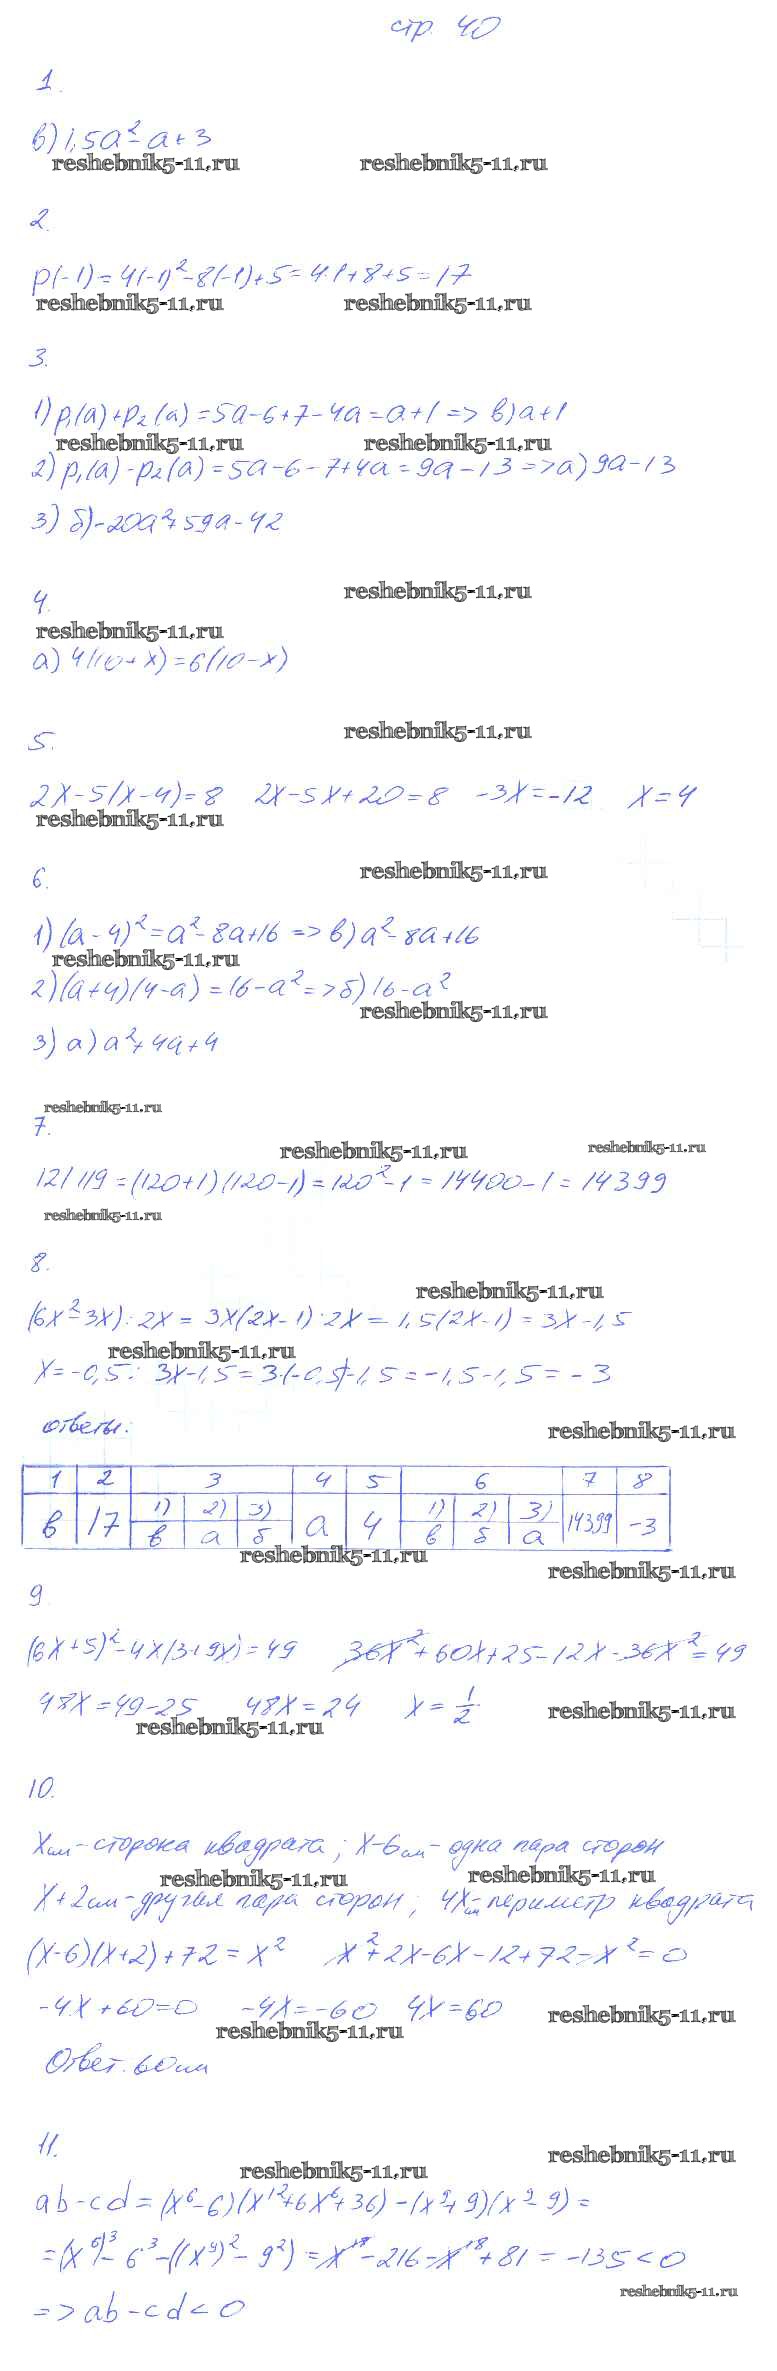 стр. 40
1.
в) 1,5a² - a + 3
reshebnik5-11.ru reshebnik5-11.ru
2.
p(-1) = 4(-1)² - 8(-1) + 5 = 4·1 + 8 + 5 = 17
reshebnik5-11.ru reshebnik5-11.ru
3.
1) p₁(a) + p₂(a) = 5a - 6 + 7 - 4a = a + 1 => в) a + 1
reshebnik5-11.ru reshebnik5-11.ru
2) p₁(a) - p₂(a) = 5a - 6 - 7 + 4a = 9a - 13 => а) 9a - 13
3) б) -20a² + 59a - 42
reshebnik5-11.ru
4.
reshebnik5-11.ru
а) 4(10 + x) = 6(10 - x)
reshebnik5-11.ru
5.
2x - 5(x - 4) = 8 2x - 5x + 20 = 8 -3x = -12 x = 4
reshebnik5-11.ru
reshebnik5-11.ru
6.
1) (a - 4)² = a² - 8a + 16 => в) a² - 8a + 16
reshebnik5-11.ru
2) (a + 4)(4 - a) = 16 - a² => б) 16 - a²
reshebnik5-11.ru
3) а) a² + 4a + 4
reshebnik5-11.ru
7.
reshebnik5-11.ru reshebnik5-11.ru
121·119 = (120 + 1)(120 - 1) = 120² - 1 = 14400 - 1 = 14399
reshebnik5-11.ru
8.
reshebnik5-11.ru
(6x² - 3x) : 2x = 3x(2x - 1) : 2x = 1,5(2x - 1) = 3x - 1,5
reshebnik5-11.ru
x = -0,5 : 3x - 1,5 = 3·(-0,5) - 1,5 = -1,5 - 1,5 = -3
ответы:
reshebnik5-11.ru
1 2 3 4 5 6 7 8
в 17 1) 2) 3) а 4 1) 2) 3) 14399 -3
в а б в б а
reshebnik5-11.ru
reshebnik5-11.ru
9.
(6x + 5)² - 4x(3 + 9x) = 49 36x² + 60x + 25 - 12x - 36x² = 49
48x = 49 - 25 48x = 24 x = 1/2
reshebnik5-11.ru reshebnik5-11.ru
10.
x см - сторона квадрата; x - 6 см - одна пара сторон
reshebnik5-11.ru reshebnik5-11.ru
x + 2 см - другая пара сторон; 4x см - периметр квадрата
(x - 6)(x + 2) + 72 = x² x² + 2x - 6x - 12 + 72 - x² = 0
-4x + 60 = 0 -4x = -60 4x = 60
reshebnik5-11.ru reshebnik5-11.ru
Ответ. 60 см
11.
reshebnik5-11.ru reshebnik5-11.ru
ab - cd = (x⁶ - 6)(x¹² + 6x⁶ + 36) - (x⁹ + 9)(x⁹ - 9) =
= (x⁶)³ - 6³ - ((x⁹)² - 9²) = x¹⁸ - 216 - x¹⁸ + 81 = -135 < 0
reshebnik5-11.ru
=> ab - cd < 0